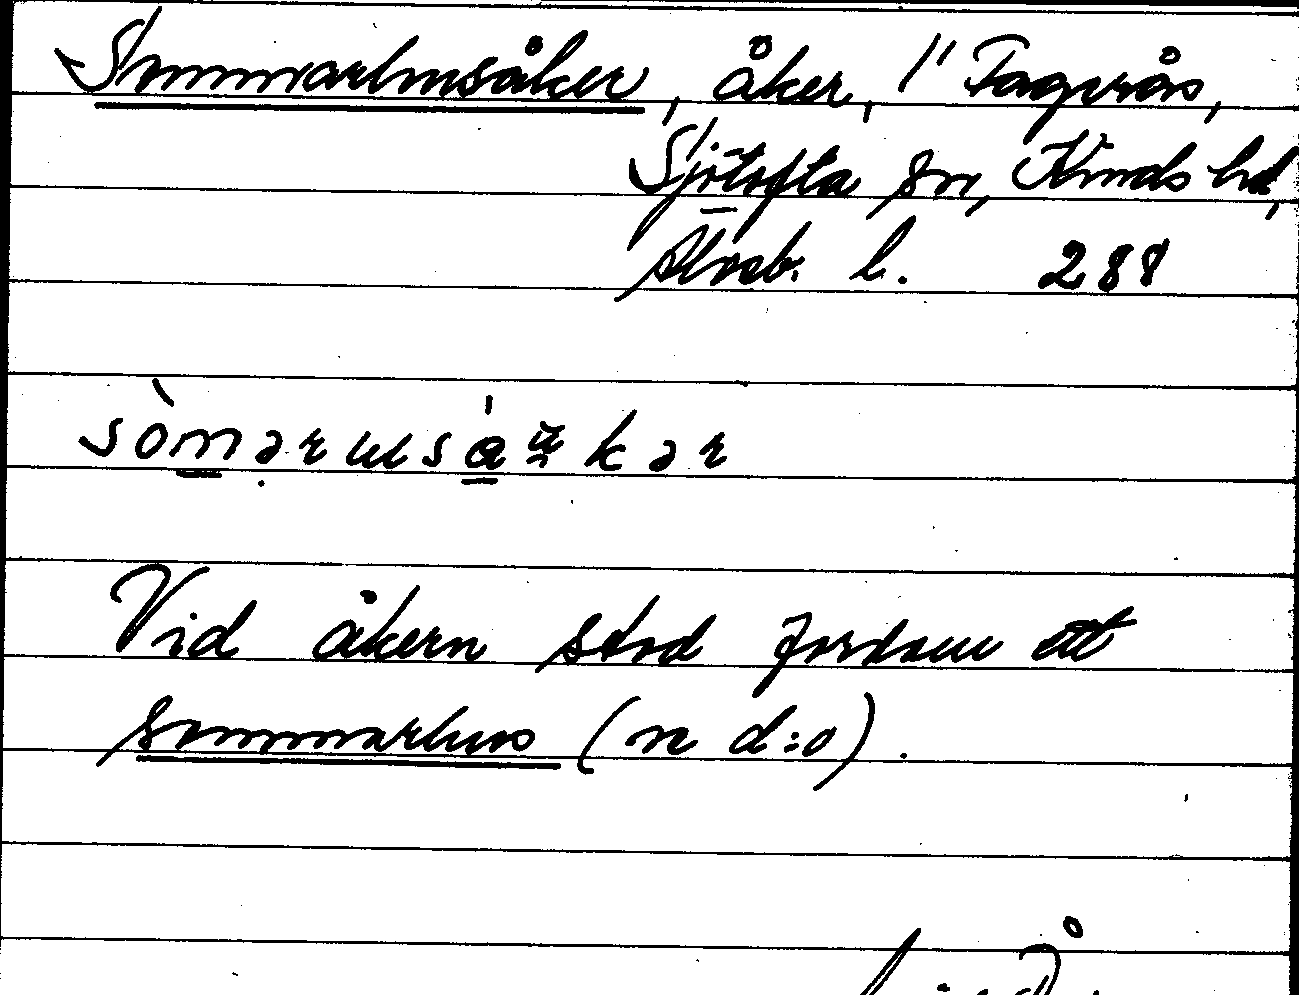 Sommarhusåker, åker, 1" Fagerås,
Sjötofta sn, Kinds hd,
Älvsb. l. 288
Vid åkern stod fordom ett
sommarhus (n d:o).